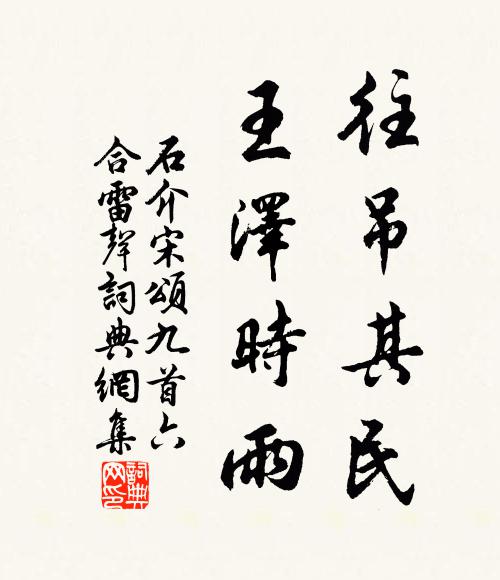 往吊其民
王澤時雨
石介宋頌九首六
合雷聲詞典網集
詞典
网印